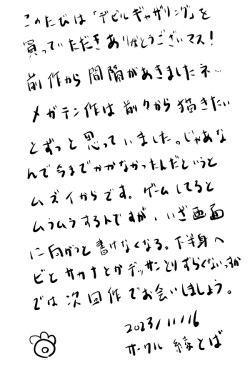 このたびは「デビルギャザリング」を
買っていただきありがとうございマス!
前作から間隔があきましたネ…
メガテン作は前々から描きたい
とずっと思っていました。じゃあな
んで今までかかなかったんだというと
ムズイからです。ゲームしてると
ムラムラするんですが、いざ画面
に向かうと書けなくなる。下半身ヘ
ビとかサカナとかデッサンとりずらくない。
では次回作でお会いしましょう。
2023/11/16
サークル 綾とば